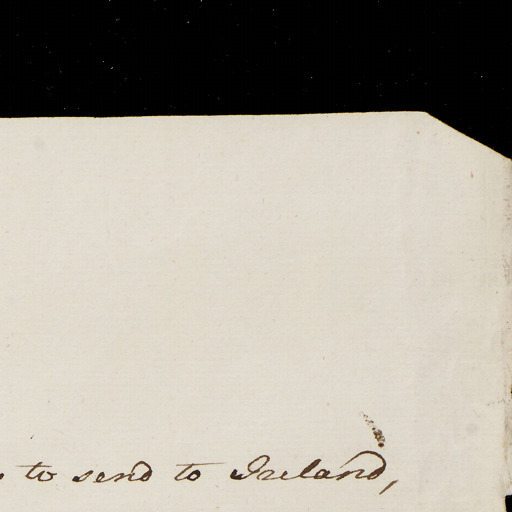 to send to Ireland,